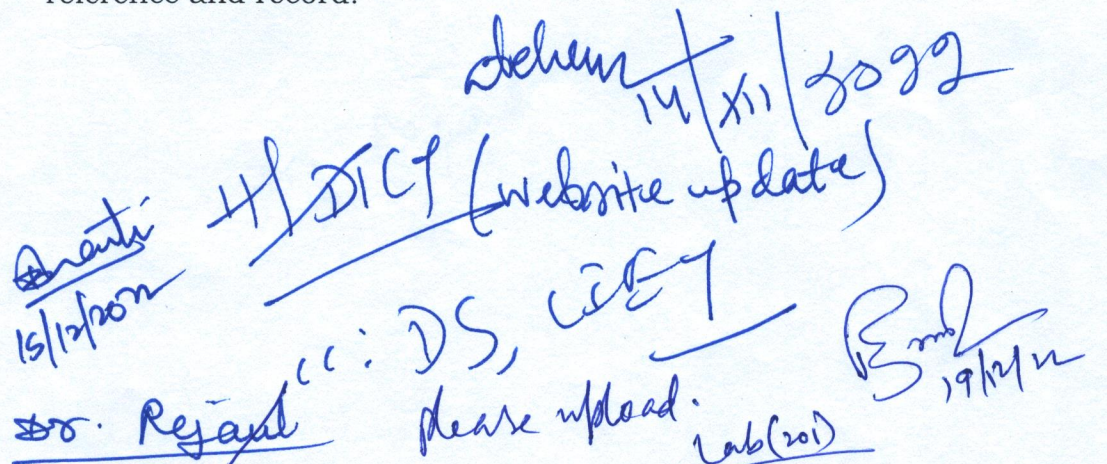 reference and record.
14/XII/2022
H/DICT (website update)
15/12/2022
cc: DS, CIEY
Dr. Rejaul please upload.
19/12/22
Lab(201)